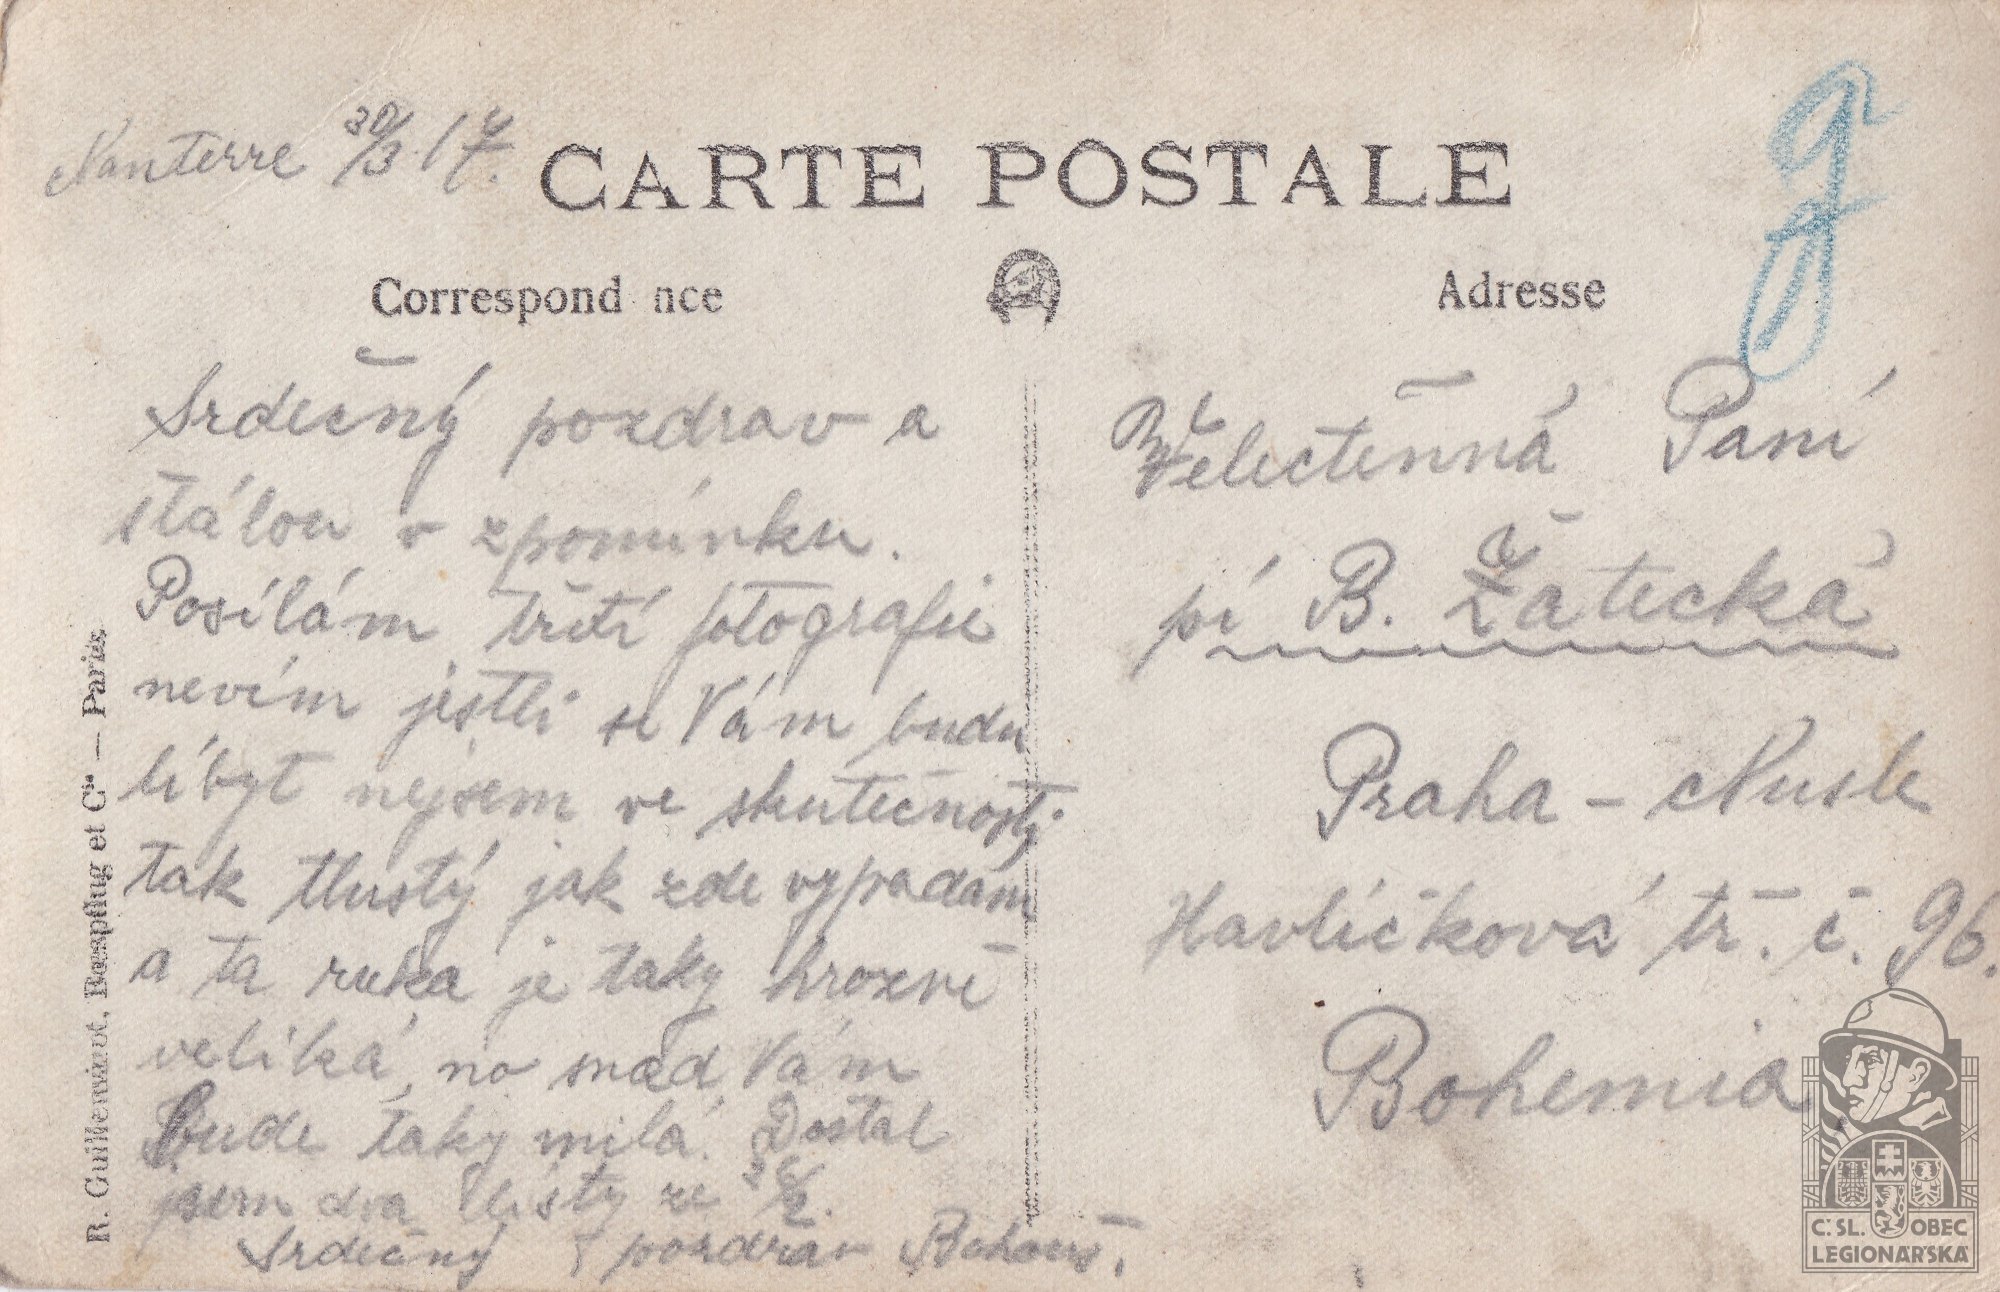 Nanterre 30/3. 17.
CARTE POSTALE
Correspond nce
Adresse
Srdečný pozdrav a
stálou v zpomínku.
Posílám třetí fotografii
nevím jestli se Vám budu
líbyt nejsem ve skutečnosti
tak tlustý jak zde vypadám
a ta ruka je taky hrozně
veliká, no snad Vám
bude taky milá. Dostal
jsem dva listy ze
Srdečný pozdrav Bohouš.
Velectěnná Paní
pí B. Žatecká
Praha - Nusle
Havlíčková tř. č. 96.
Bohemia
R. Guilleminot, Bœspflug et Cie — Paris
Č.SL. OBEC
LEGIONÁŘSKÁ